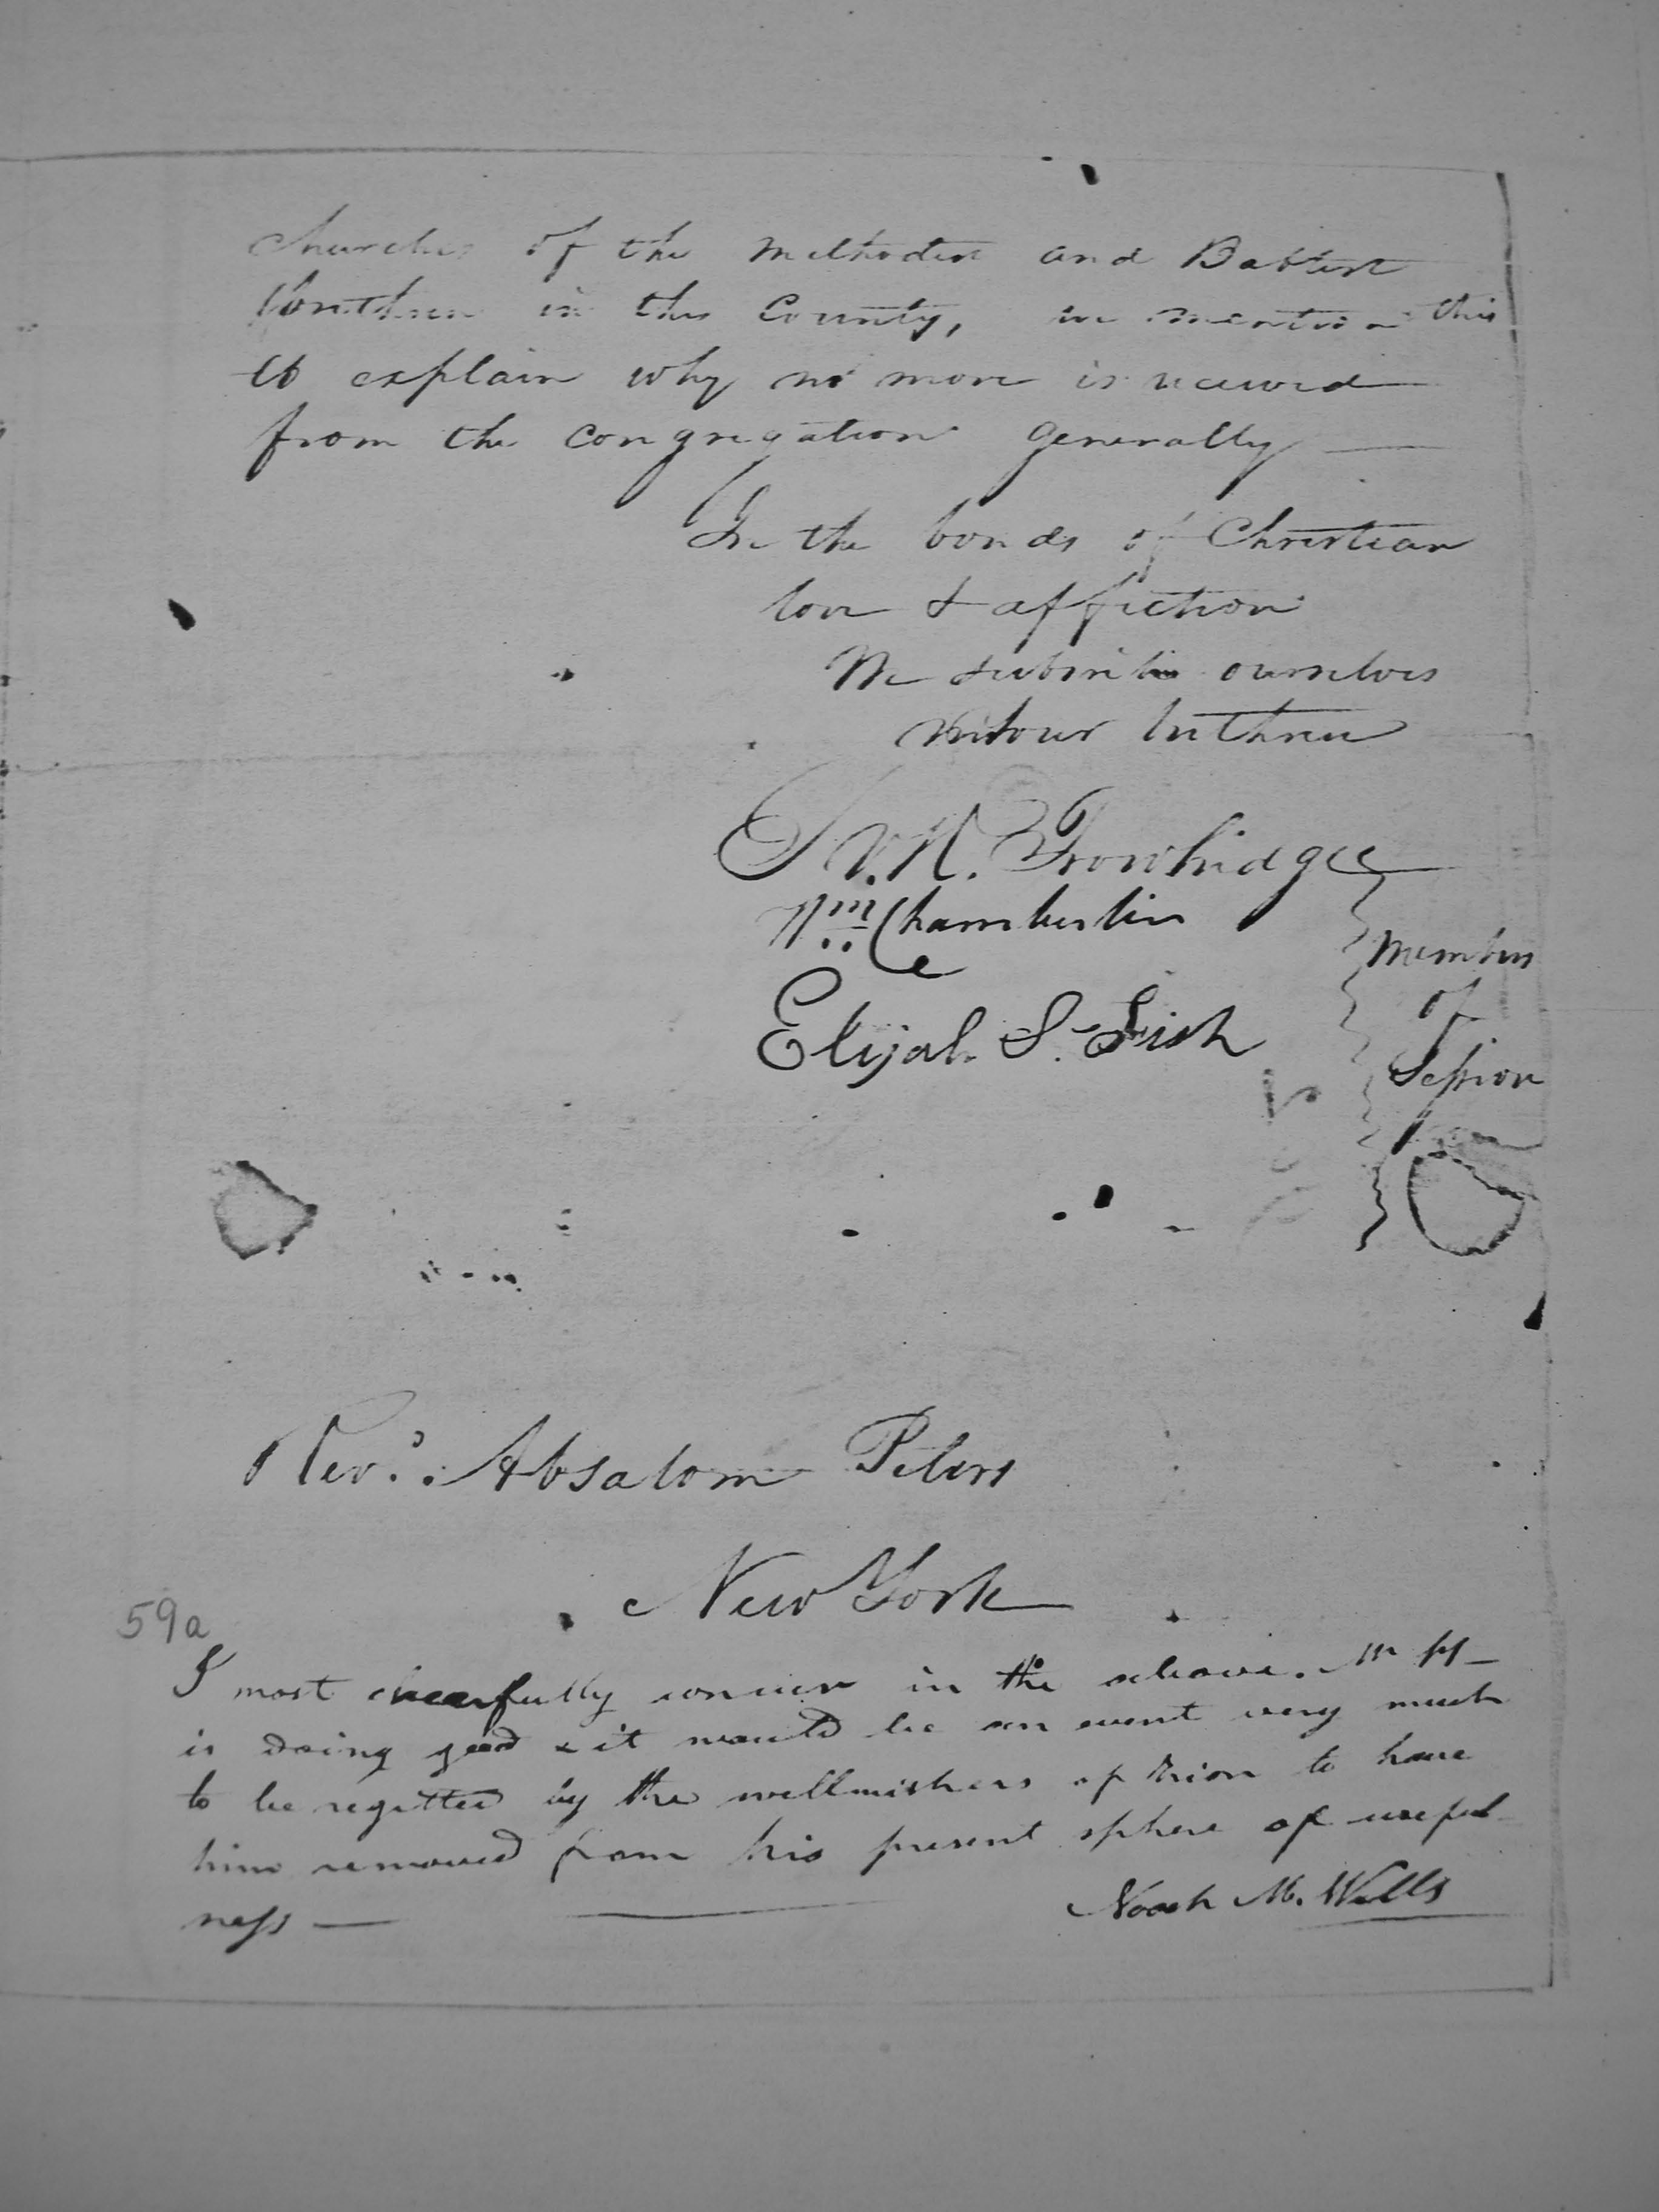 Churches of the Methodist and Babtist
brethren in this County, we mention this
to explain why no more is received
from the congregation generally —
In the bonds of Christian
love & affection
We subscribe ourselves
your brethren
S. V. R. Trowbridge
Wm Chamberlin
Elijah S. Fish
Members
of
Session
Revd. Absalom Peters
New York
59a
I most cheerfully concur in the above. Mr H—
is doing good & it would be an event very much
to be regretted by the wellwishers of Zion to have
him removed from his present sphere of useful
ness —
Noah M. Wells